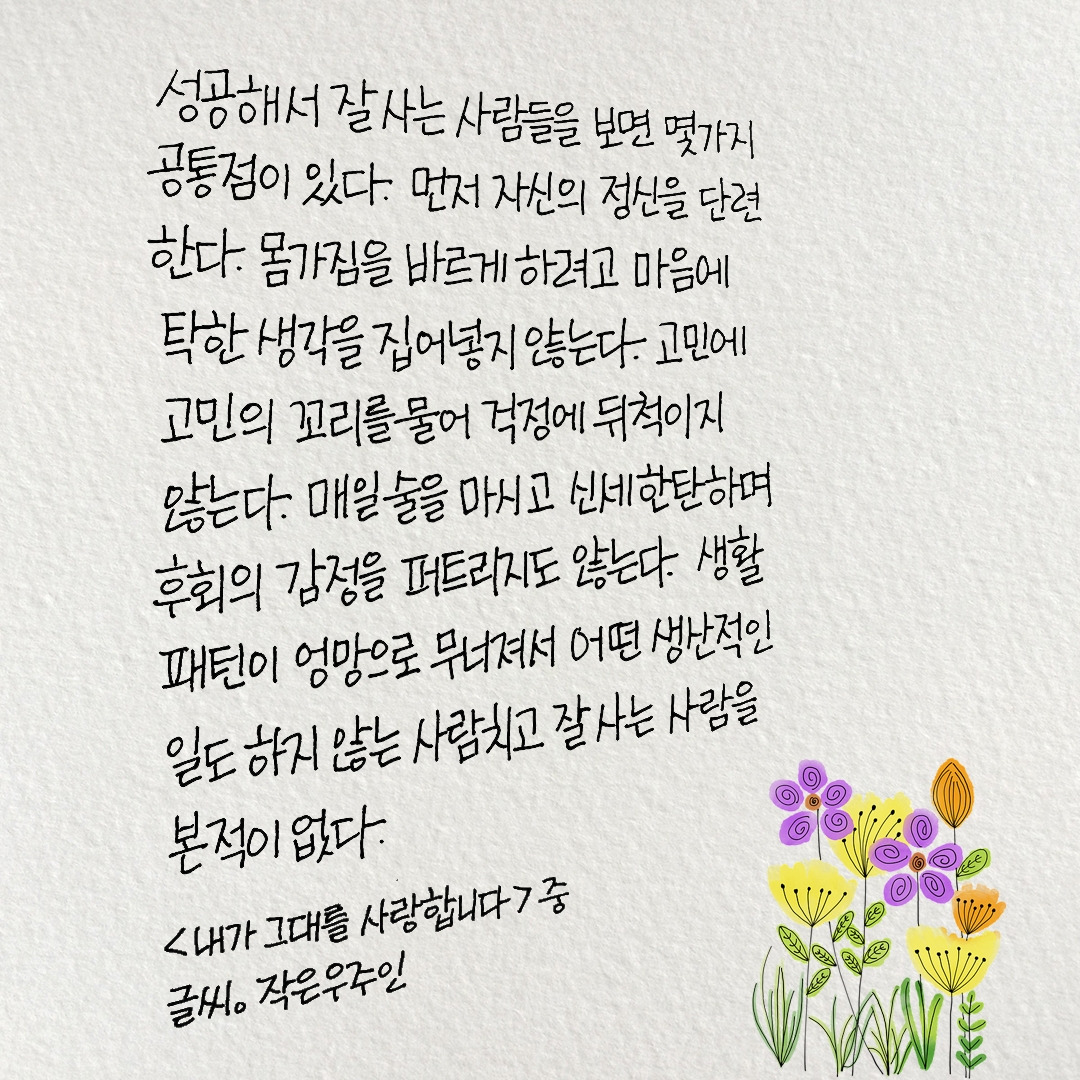 성공해서 잘 사는 사람들을 보면 몇가지
공통점이 있다. 먼저 자신의 정신을 단련
한다. 몸가짐을 바르게 하려고 마음에
탁한 생각을 집어넣지 않는다. 고민에
고민의 꼬리를 물어 걱정에 뒤척이지
않는다. 매일 술을 마시고 신세한탄하며
후회의 감정을 퍼트리지도 않는다. 생활
패턴이 엉망으로 무너져서 어떤 생산적인
일도 하지 않는 사람치고 잘 사는 사람을
본 적이 없다.
<내가 그대를 사랑합니다> 중
글씨。 작은우주인